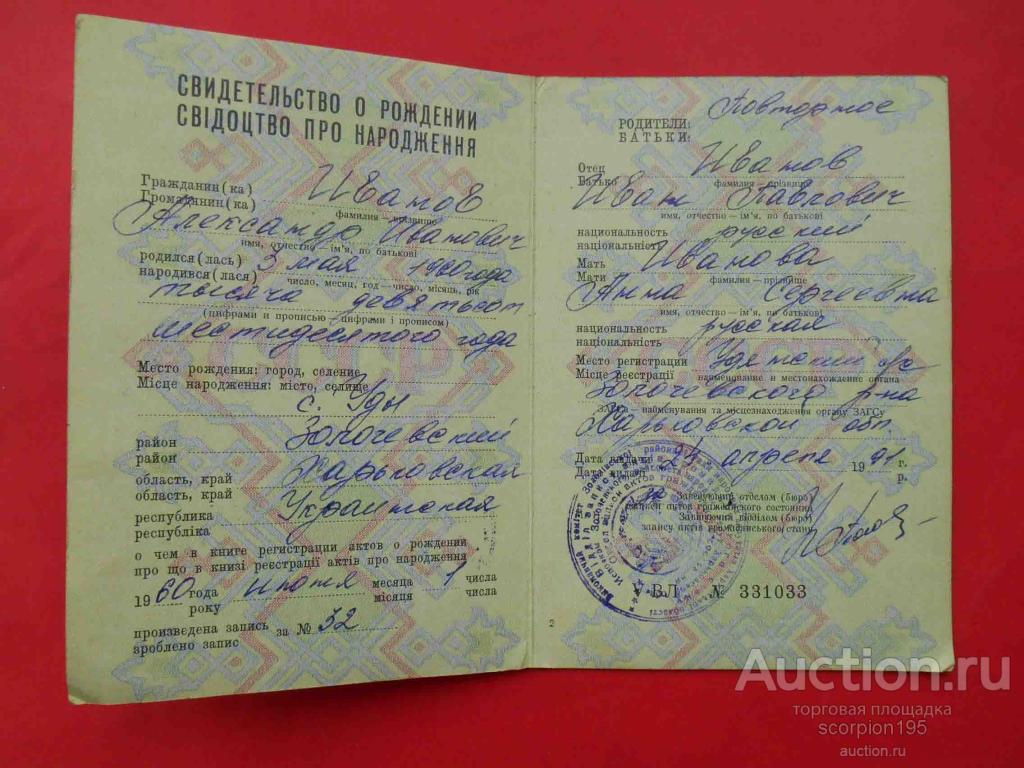 СВИДЕТЕЛЬСТВО О РОЖДЕНИИ
СВІДОЦТВО ПРО НАРОДЖЕННЯ
Гражданин(ка) Иванов
Громадянин(ка)
фамилия — прізвище
Александр Иванович
имя, отчество — ім'я, по батькові
родился(лась) 3 мая 1960 года
народився(лася) число, месяц, год — число, місяць, рік
тысяча девятьсот
(цифрами и прописью — цифрами і прописом)
шестидесятого года
Место рождения: город, селение
Місце народження: місто, селище
с. Уды
район Золочевский
район
область, край Харьковская
область, край
республика Украинская
республіка
о чем в книге регистрации актов о рождении
про що в книзі реєстрації актів про народження
1960 года июня месяца 1 числа
року місяця числа
произведена запись за № 32
зроблено запис
Повторное
РОДИТЕЛИ:
БАТЬКИ:
Отец Иванов
Батько фамилия — прізвище
Иван Павлович
имя, отчество — ім'я, по батькові
национальность русский
національність
Мать Иванова
Мати фамилия — прізвище
Анна Сергеевна
имя, отчество — ім'я, по батькові
национальность русская
національність
Место регистрации Удянский с/с
Місце реєстрації наименование и местонахождение органа
Золочевского р-на
ЗАГСа — найменування та місцезнаходження органу ЗАГСу
Харьковской обл.
Дата выдачи 24 апреля 1991 г.
Дата видачі р.
Заведующий отделом (бюро)
записи актов гражданского состояния
Завідуючий відділом (бюро)
запису актів громадянського стану
АВЛ № 331033
2
Auction.ru
торговая площадка
scorpion195
auction.ru